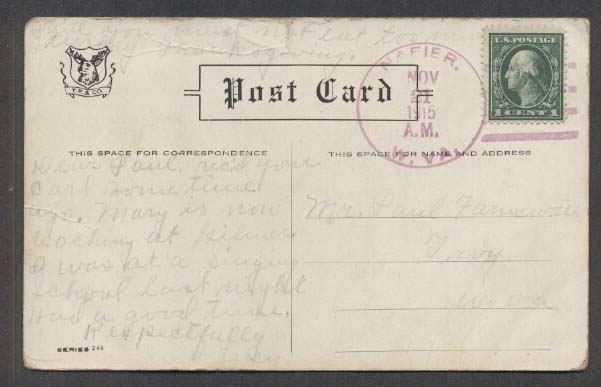 you must not eat too much
Thanksgiving.
T. P. & CO.
Post Card
NAPIER.
NOV
21
1915
A.M.
W. VA.
U.S. POSTAGE
1 CENT 1
THIS SPACE FOR CORRESPONDENCE
THIS SPACE FOR NAME AND ADDRESS
Dear Paul, rec'd your
card some time
ago. Mary is now
teaching at Gilmer.
I was at a singing
school last night
had a good time.
Respectfully
Mr. Paul Farnsworth
Troy
W. Va
SERIES 246